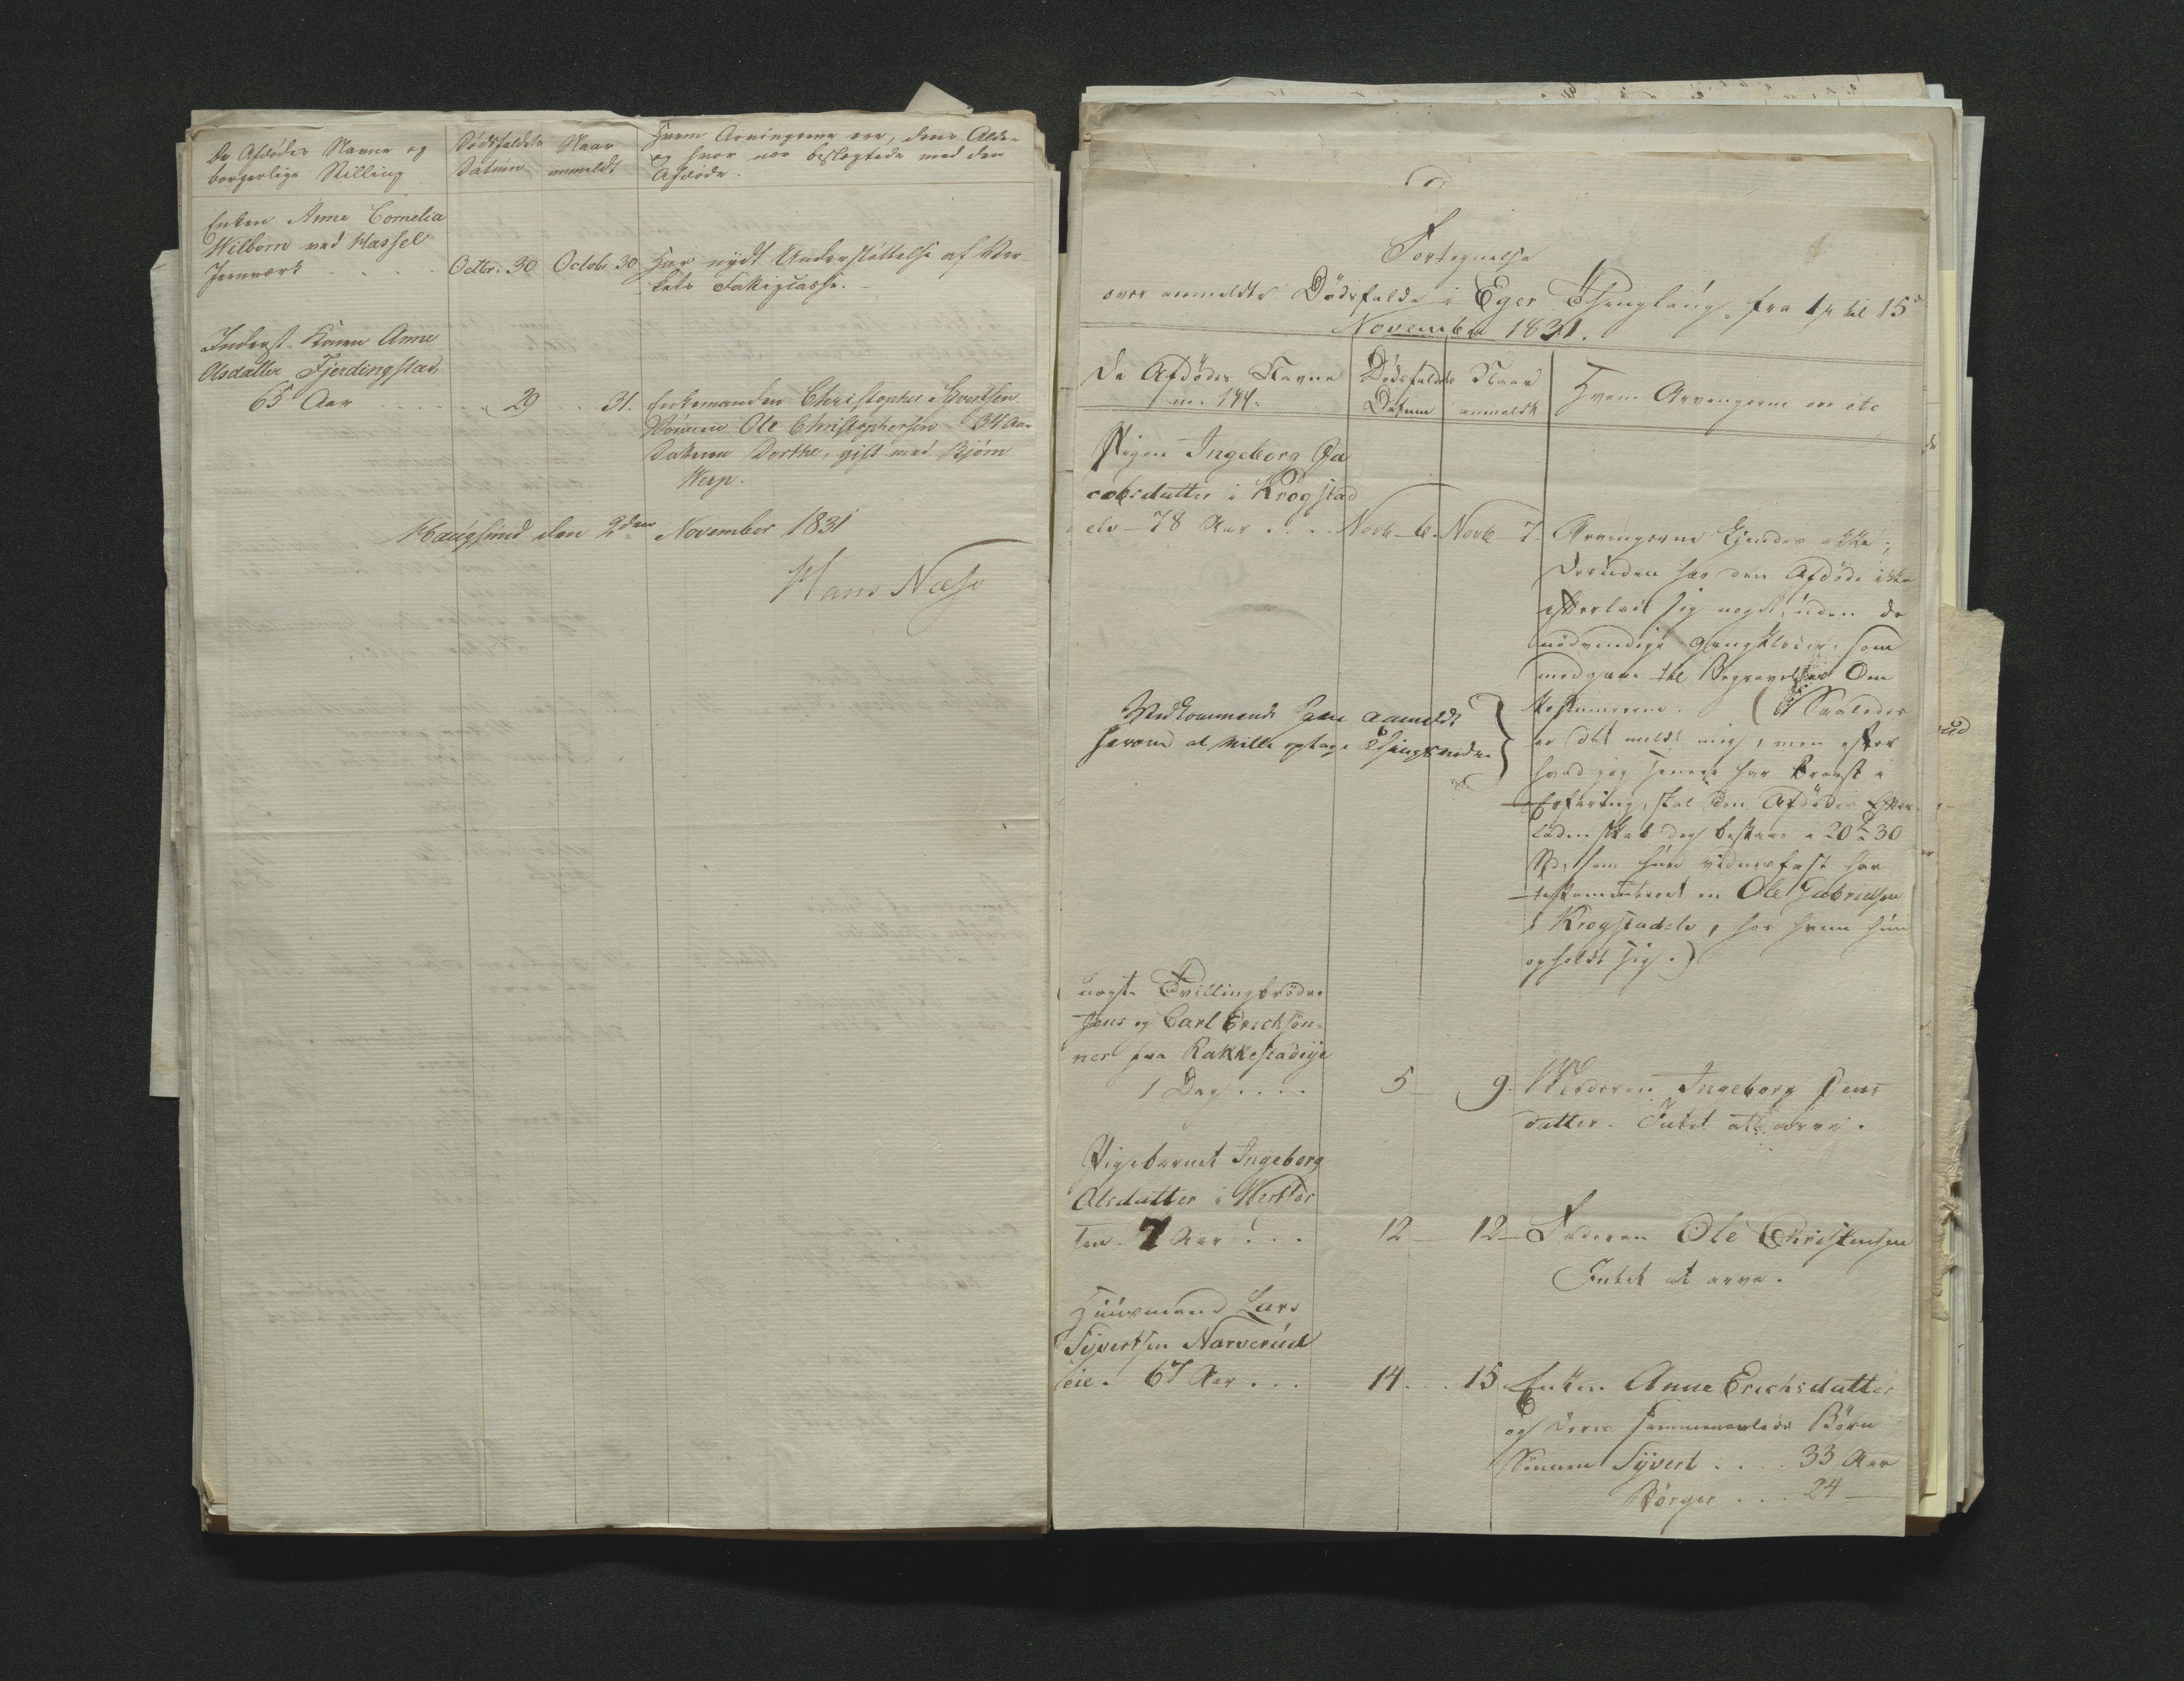 De Afdødes Navne og
borgerlige Stilling
Dødsfaldets
Datum
Naar
anmeldt
Hvem Arvingerne ere, deres Alder
og hvor nær beslægtede med den
Afdøde.
Enken Anne Cornelia
Wilborn ved Hassel
Jernværk . . . . Octbr. 30 Octobr 30 Har nydt Understøttelse af Vær-
kets Fattigcasse.
Inderst-Konen Anne
Olsdatter Fjerdingstad
65 Aar . . . . . 29 . 31. Enkemanden Christopher Syvertsen
Sønnen Ole Christophersen 34 Aar
Datteren Dorthe, gift med Bjørn
Werp.
Haugsund den 2den November 1831
Hans Næss
Fortegnelse
over anmeldte Dødsfalde i Eger Thinglaug fra 1ste til 15de
November 1831.
De Afdødes Navne
m. m.
Dødsfaldets
Datum
Naar
anmeldt
Hvem Arvingerne ere etc
Pigen Ingeborg Ja
cobsdatter i Krogstad
elv - 78 Aar . . . Novb - 6. Novb - 7. Arvingerne kjendes ikke;
desuden har den Afdøde ikke
efterladt sig noget, uden de
nødvendige Gangklæder, som
medgaae til Begravelses Om
kostningerne. (Saaledes
er det meldt mig, men efter
hvad jeg senere har bragt i
Erfaring, skal den Afdødes Efter-
ladenskab dog bestaae i 20 a 30
Spd, som hun vidnesfast har
testamenteret en Ole Gabrielsen
i Krogstadelv, hos hvem hun
opholdt sig.)
Vedkommende have anmeldt
herom at ville optage Thingsvidne
uægte Tvillingbrødre
Jens og Carl Ericksøn-
ner fra Rakkestadeije
1 Dag . . . . 5 - 9. Moderen Ingeborg Jens
datter. Intet at arve.
Pigebarnet Ingeborg
Olsdatter i Vestfos
sen - 7 Aar . . . 12 - 12 - Faderen Ole Christensen
Intet at arve.
Huusmand Lars
Syvertsen Narverud
eie. 67 Aar . . . 14. . . 15 Enken Anne Erichsdatter
og deres sammenavlede Børn
Sønnen Syvert . . . . 33 Aar
Børger . . . 24 -